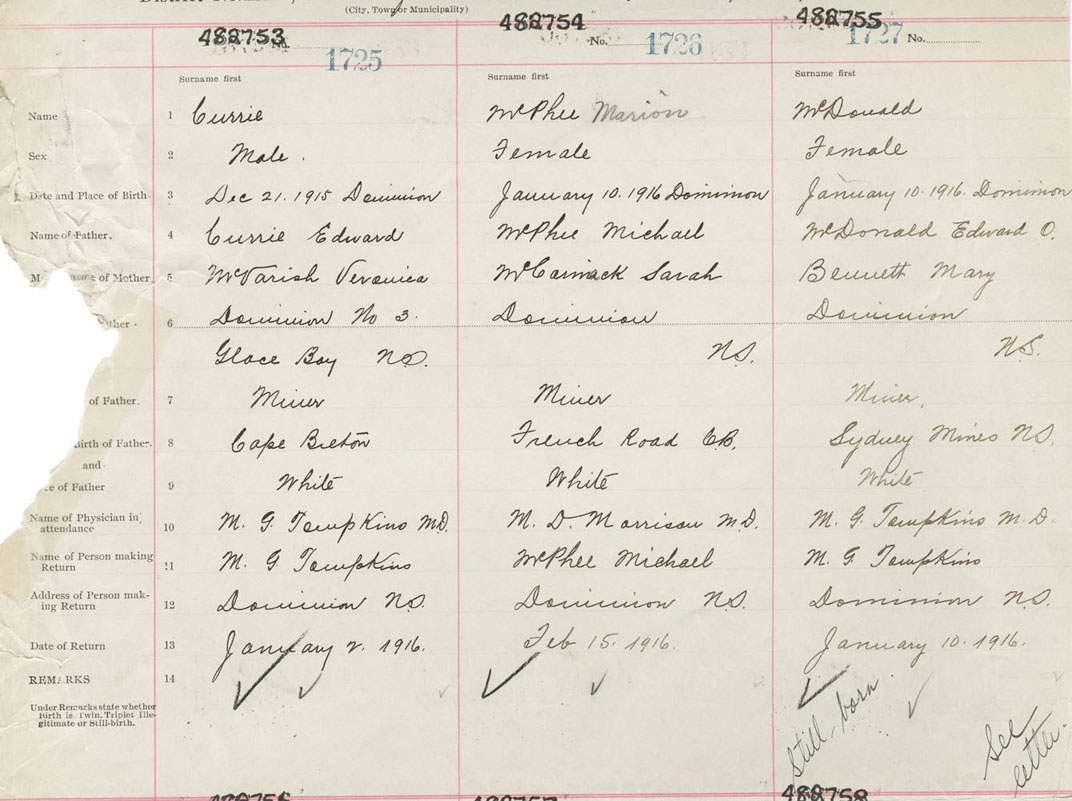 (City, Town or Municipality)
482753 482754 482755
No. 1725 No. 1726 1727 No.
Surname first Surname first Surname first
Name 1 Currie McPhee Marion McDonald
Sex 2 Male. Female Female
Date and Place of Birth 3 Dec 21. 1915 Dominion January 10. 1916 Dominion January 10. 1916. Dominion
Name of Father. 4 Currie Edward McPhee Michael McDonald Edward O.
of Mother 5 McVarish Veronica McCormack Sarah Bennett Mary
6 Dominion No 3. Dominion Dominion
Glace Bay NS. NS. NS.
of Father. 7 Miner Miner Miner,
Birth of Father. 8 Cape Breton French Road C.B. Sydney Mines NS.
and
of Father 9 White White White
Name of Physician in
attendance 10 M. G. Tompkins M.D. M. D. Morrison M.D. M. G. Tompkins M.D.
Name of Person making
Return 11 M. G. Tompkins McPhee Michael M. G. Tompkins
Address of Person mak-
ing Return 12 Dominion NS. Dominion NS. Dominion NS.
Date of Return 13 January 2. 1916. Feb 15. 1916. January 10. 1916.
REMARKS 14
Under Remarks state whether
Birth is Twin, Triplet Ille-
gitimate or Still-birth.
Still-born
See
letter.
482758